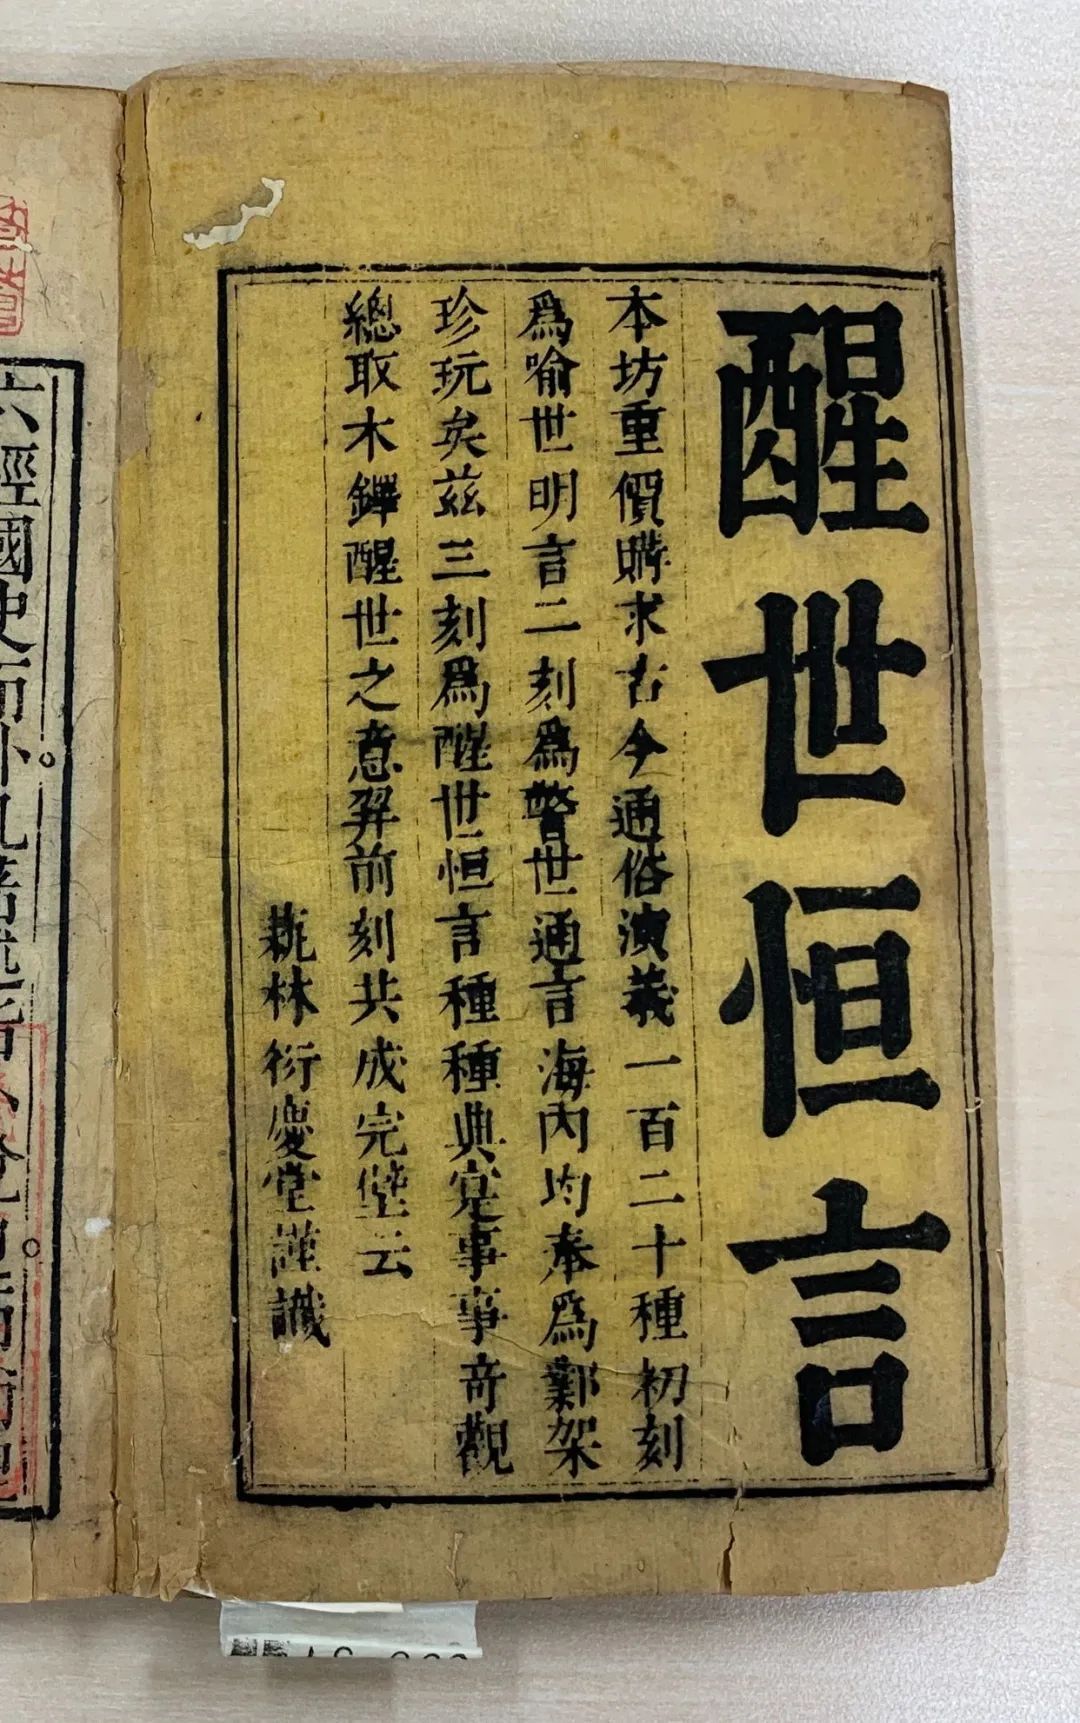 醒世恒言
本坊重價購求古今通俗演義一百二十種初刻
爲喻世明言二刻爲警世通言海内均奉爲鄴架
珍玩矣兹三刻爲醒世恒言種種典寔事事奇觀
總取木鐸醒世之意並前刻共成完璧云
蓺林衍慶堂謹識
六經國史而外凡著述